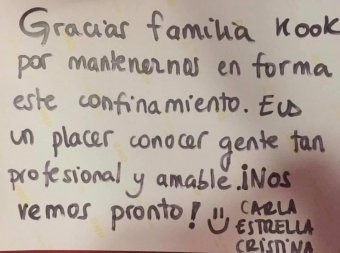 Gracias familia Kook
por mantenernos en forma
este confinamiento. Es
un placer conocer gente tan
profesional y amable. ¡Nos
vemos pronto! CARLA
ESTRELLA
CRISTINA